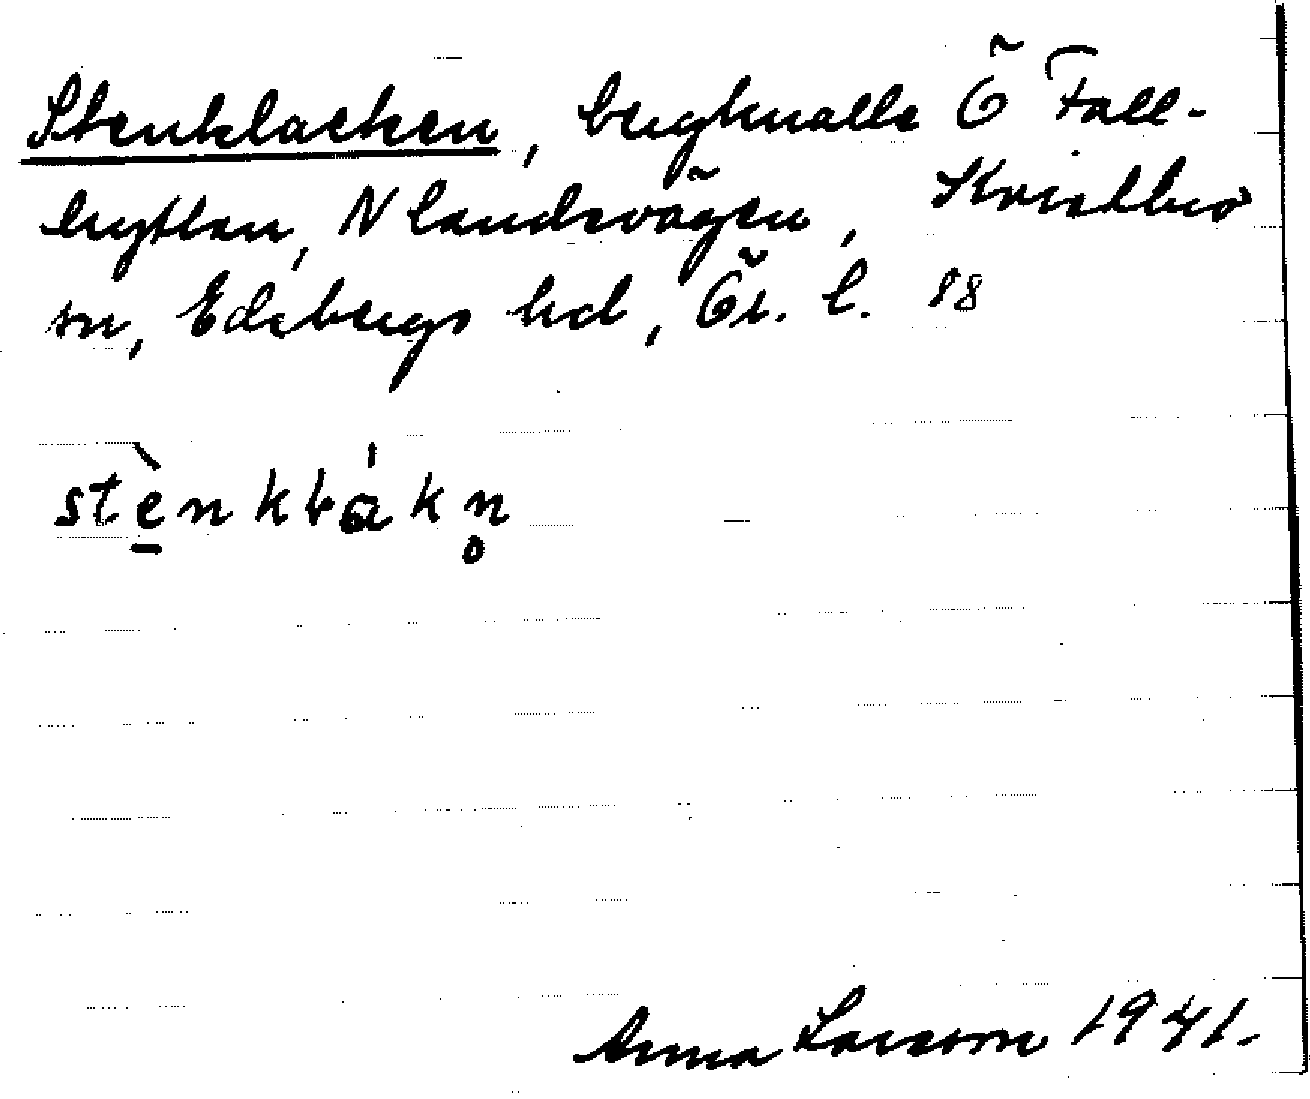 Stenklacken, bergknalle Ö Fall-
hyttan, N landsvägen, Kvistbro
sn, Edsbergs hd, Ör. l. 18
stènkɫákn̥
Anna Larsson 1941.